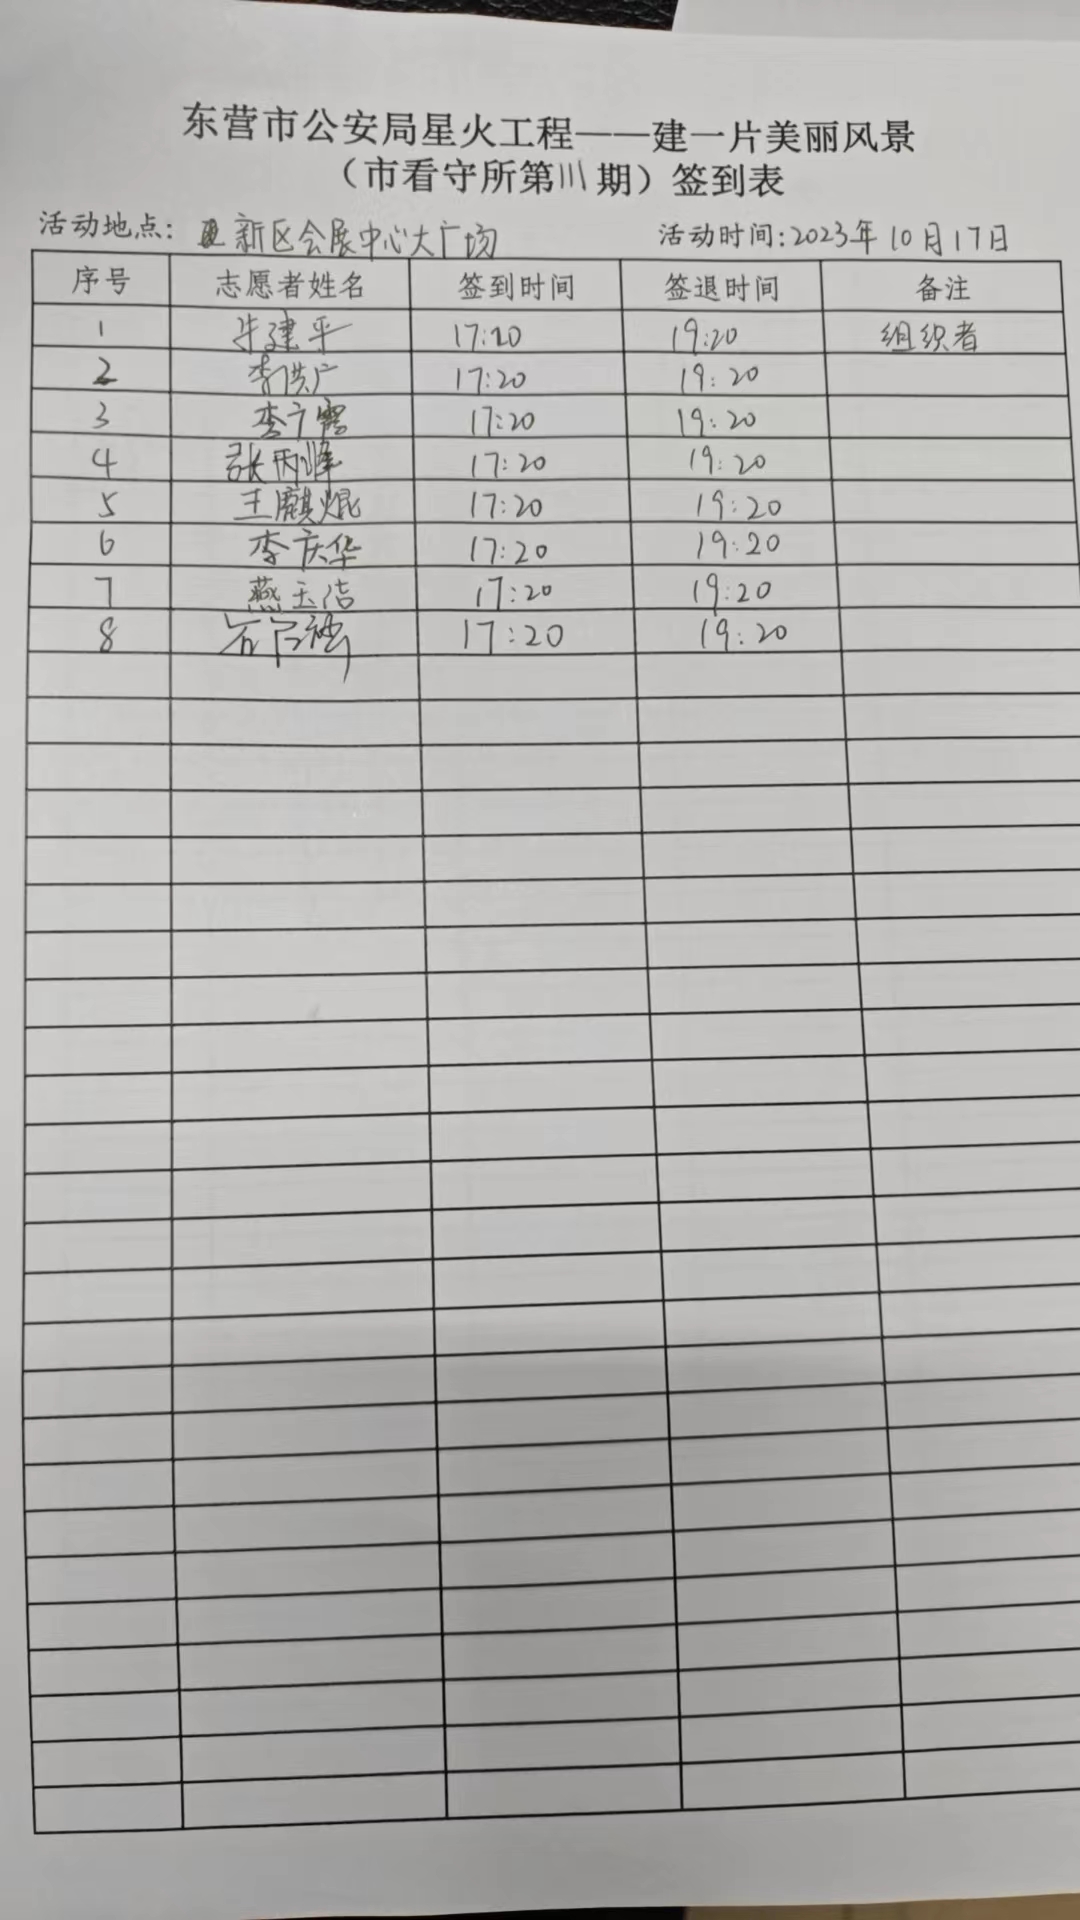 东营市公安局星火工程——建一片美丽风景
（市看守所第111期）签到表
活动地点：新区会展中心大广场 活动时间：2023年10月17日
序号 志愿者姓名 签到时间 签退时间 备注
1 牛建平 17:20 19:20 组织者
2 李洪广 17:20 19:20
3 李广 17:20 19:20
4 张丙峰 17:20 19:20
5 王麒焜 17:20 19:20
6 李庆华 17:20 19:20
7 燕玉洁 17:20 19:20
8 17:20 19:20